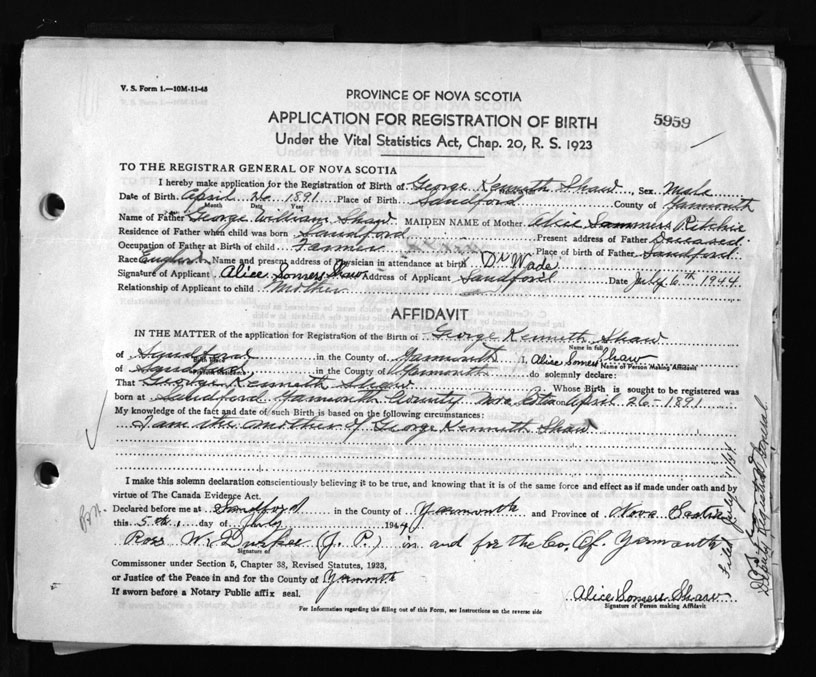 V. S. Form 1.—10M-11-43
PROVINCE OF NOVA SCOTIA
APPLICATION FOR REGISTRATION OF BIRTH
5959
Under the Vital Statistics Act, Chap. 20, R. S. 1923
TO THE REGISTRAR GENERAL OF NOVA SCOTIA
I hereby make application for the Registration of Birth of George Kenneth Shaw, Sex Male
Date of Birth April 26 1891 Place of Birth Sandford County of Yarmouth
Month Date Year
Name of Father George William Shaw MAIDEN NAME of Mother Alice Sommers Ritchie
Residence of Father when child was born Sandford Present address of Father Deceased
Occupation of Father at Birth of child Farmer Place of birth of Father Sandford
Race English Name and present address of Physician in attendance at birth Dr Wade
Signature of Applicant Alice Somers Shaw Address of Applicant Sandford Date July 6th 1944
Relationship of Applicant to child Mother
AFFIDAVIT
IN THE MATTER of the application for Registration of the Birth of George Kenneth Shaw
Name in full
of Sandford in the County of Yarmouth I, Alice Somers Shaw
Birth place
Name of Person Making Affidavit
of Sandford, in the County of Yarmouth do solemnly declare:
That George Kenneth Shaw Whose Birth is sought to be registered was
born at Sandford Yarmouth County Nova Scotia on April 26-1891
My knowledge of the fact and date of such Birth is based on the following circumstances:
I am the mother of George Kenneth Shaw
I make this solemn declaration conscientiously believing it to be true, and knowing that it is of the same force and effect as if made under oath and by
virtue of The Canada Evidence Act.
Declared before me at Sandford in the County of Yarmouth and Province of Nova Scotia
this 5th, day of July 1944
Ross W. Durkee (J. P.) in and for the Co. Of. Yarmouth
Signature of
Commissioner under Section 5, Chapter 38, Revised Statutes, 1923,
or Justice of the Peace in and for the County of Yarmouth
If sworn before a Notary Public affix seal.
Alice Somers Shaw
Signature of Person making Affidavit
For Information regarding the filling out of this Form, see Instructions on the reverse side
Filed July 11/44
Deputy Registrar General